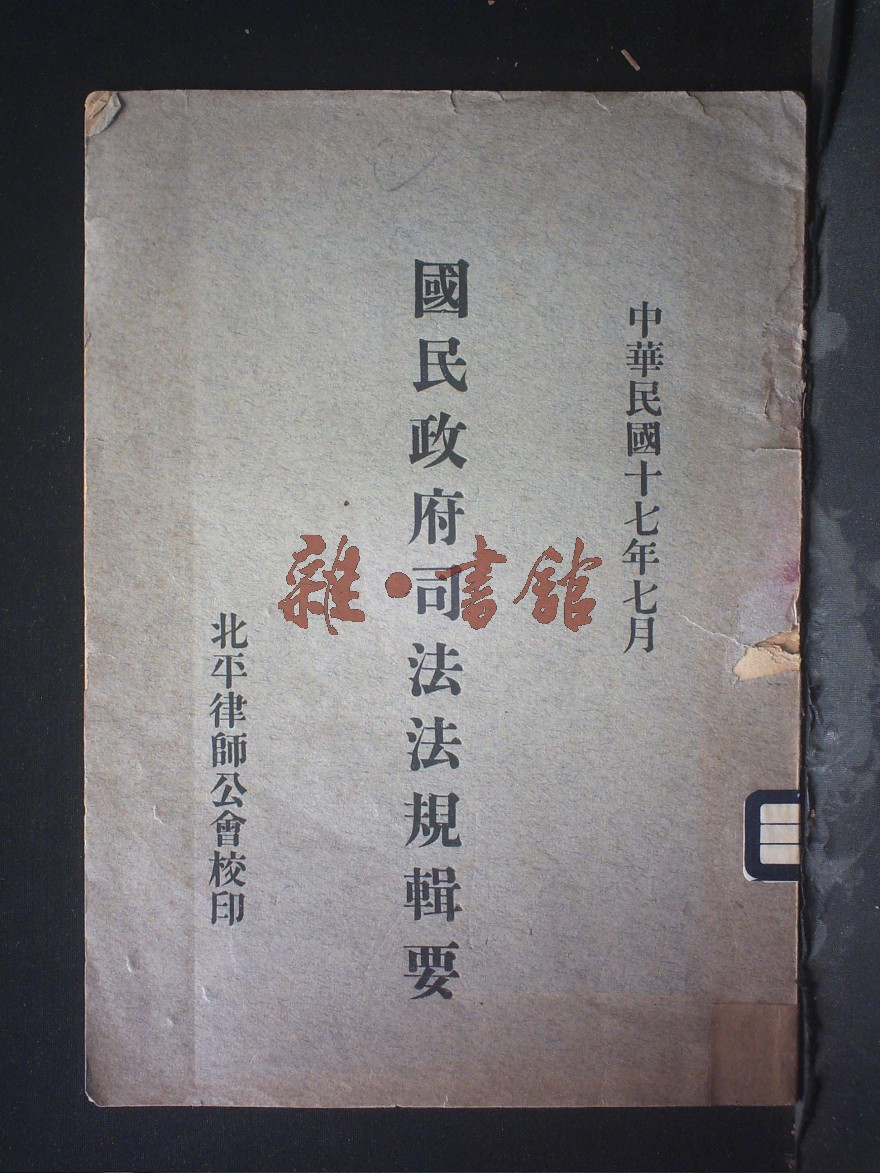 中華民國十七年七月
國民政府司法法規輯要
北平律師公會校印
雜·書館